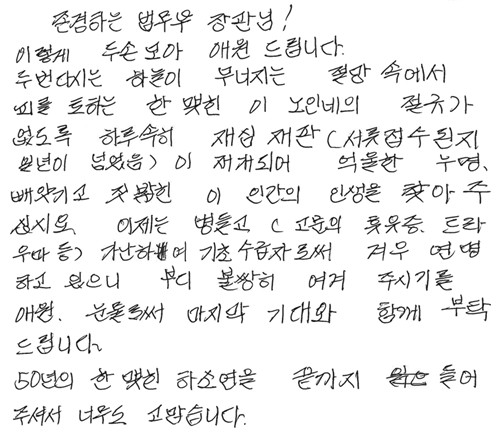 존경하는 법무부 장관님!
이렇게 두손 모아 애원 드립니다.
두번다시는 하늘이 무너지는 절망 속에서
피를 토하는 한 맺힌 이 노인네의 절규가
없도록 하루속히 재심 재판 (서류접수된지
일년이 넘었음) 이 재개되어 억울한 누명,
빼앗기고 짓밟힌 이 인간의 인생을 찾아 주
십시오. 이제는 병들고 (고문의 후유증, 트라
우마 등) 가난하여 기초수급자로써 겨우 연명
하고 있으니 부디 불쌍히 여겨 주시기를
애원, 눈물로써 마지막 기대와 함께 부탁
드립니다.
50년의 한 맺힌 하소연을 끝까지 들어
주셔서 너무도 고맙습니다.